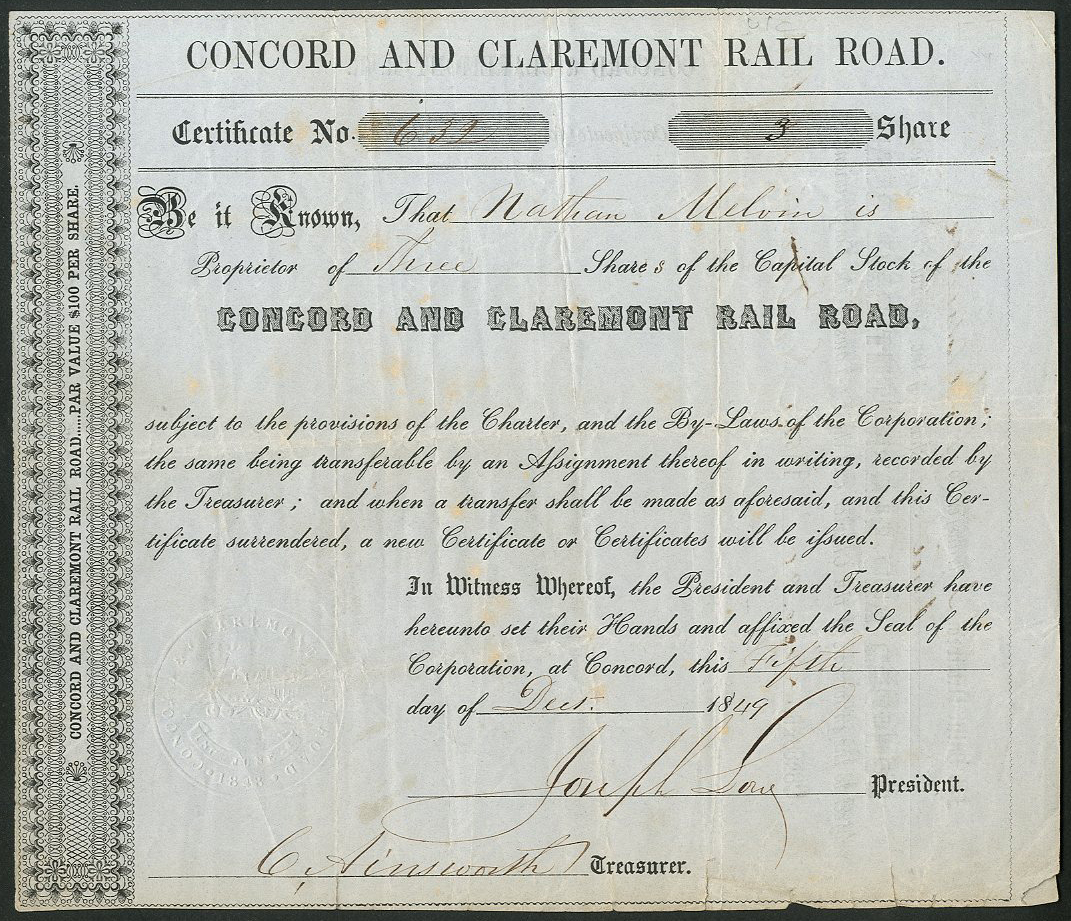 CONCORD AND CLAREMONT RAIL ROAD.
Certificate No. 632 3 Share
Be it Known, That Nathan Melvin is
Proprietor of Three Shares of the Capital Stock of the
CONCORD AND CLAREMONT RAIL ROAD,
subject to the provisions of the Charter, and the By-Laws of the Corporation;
the same being transferable by an Aſsignment thereof in writing, recorded by
the Treasurer; and when a transfer shall be made as aforesaid, and this Cer-
tificate surrendered, a new Certificate or Certificates will be iſsued.
In Witness Whereof, the President and Treasurer have
hereunto set their Hands and affixed the Seal of the
Corporation, at Concord, this Fifth
day of Decr. 1849
Joseph Low President.
C. Ainsworth Treasurer.
CONCORD AND CLAREMONT RAIL ROAD.....PAR VALUE $100 PER SHARE.